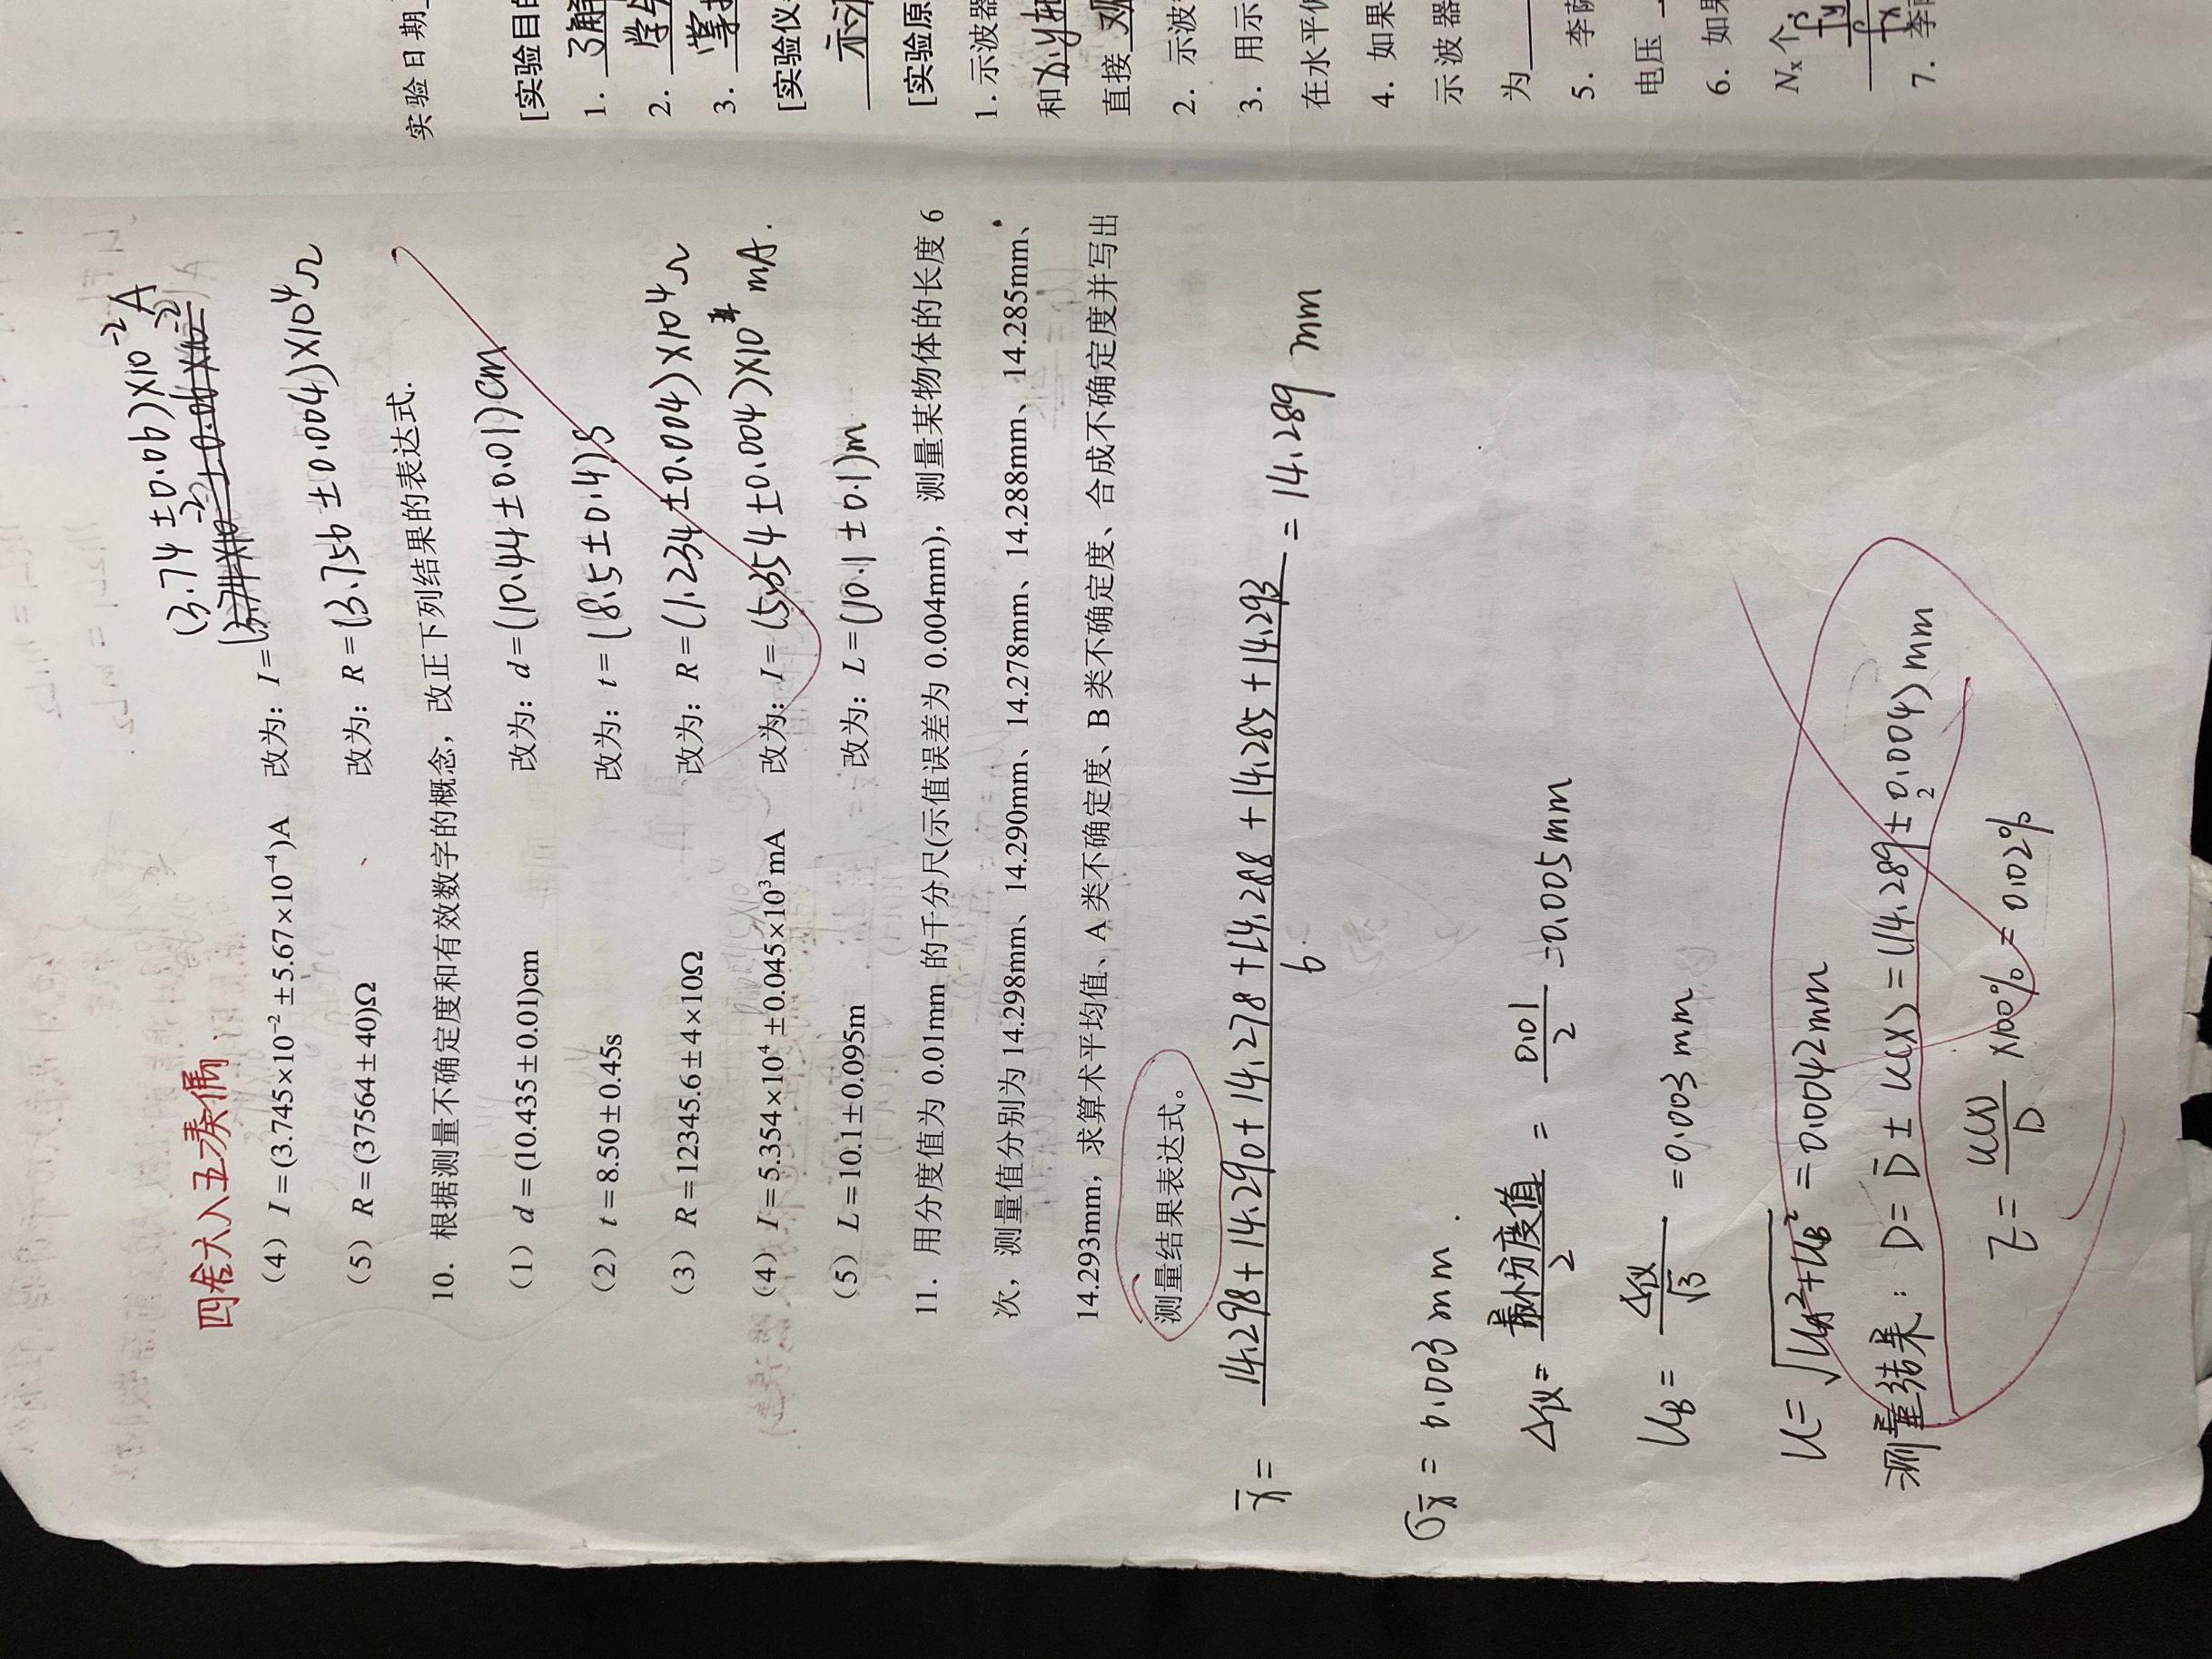 (3.74±0.06)×10⁻²A
四舍六入五凑偶.
(3.74×10⁻²±0.06×10⁻²
（4）I=(3.745×10⁻²±5.67×10⁻⁴)A 改为：I=
（5）R=(37564±40)Ω 改为：R=(3.756±0.004)×10⁴Ω
10．根据测量不确定度和有效数字的概念，改正下列结果的表达式.
（1）d=(10.435±0.01)cm 改为：d=(10.44±0.01)cm
（2）t=8.50±0.45s 改为：t=(8.5±0.4)s
（3）R=12345.6±4×10Ω 改为：R=(1.234±0.004)×10⁴Ω
（4）I=5.354×10⁴±0.045×10³mA 改为：I=(5.354±0.004)×10⁴ mA.
（5）L=10.1±0.095m 改为：L=(10.1±0.1)m
11．用分度值为 0.01mm 的千分尺(示值误差为 0.004mm)，测量某物体的长度 6
次，测量值分别为 14.298mm、14.290mm、14.278mm、14.288mm、14.285mm、
14.293mm，求算术平均值、A 类不确定度、B 类不确定度、合成不确定度并写出
测量结果表达式。
x̄= (14.298+14.290+14.278+14.288+14.285+14.293)/6 = 14.289 mm
σx̄ = 0.003mm.
Δ仪= 最小分度值/2 = 0.01/2 =0.005mm
UB= Δ仪/√3 =0.003mm
U=√(UA²+UB²) =0.0042mm
测量结果：D=D̄±U(X)=(14.289±0.004)mm
2
E= U(X)/D ×100% = 0.02%
实验日期
[实验目的
1. 了解
2. 学
3. 掌
[实验仪
示波
[实验原
1.示波器
和x.y轴
直接 观
2．示波
3．用示
在水平偏
4．如果
示波器
为
5．李萨
电压
6．如果
Nx个，
fy
fx
7．李萨